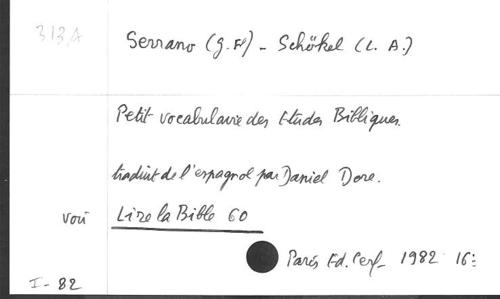 313A
Serrano (g. Fl) - Schökel (L. A.)
Petit vocabulaire des Etudes Bibliques.
traduit de l'espagnol par Daniel Dore.
voir Lire la Bible 60
Paris Ed. Cerf - 1982 16:
I - 82